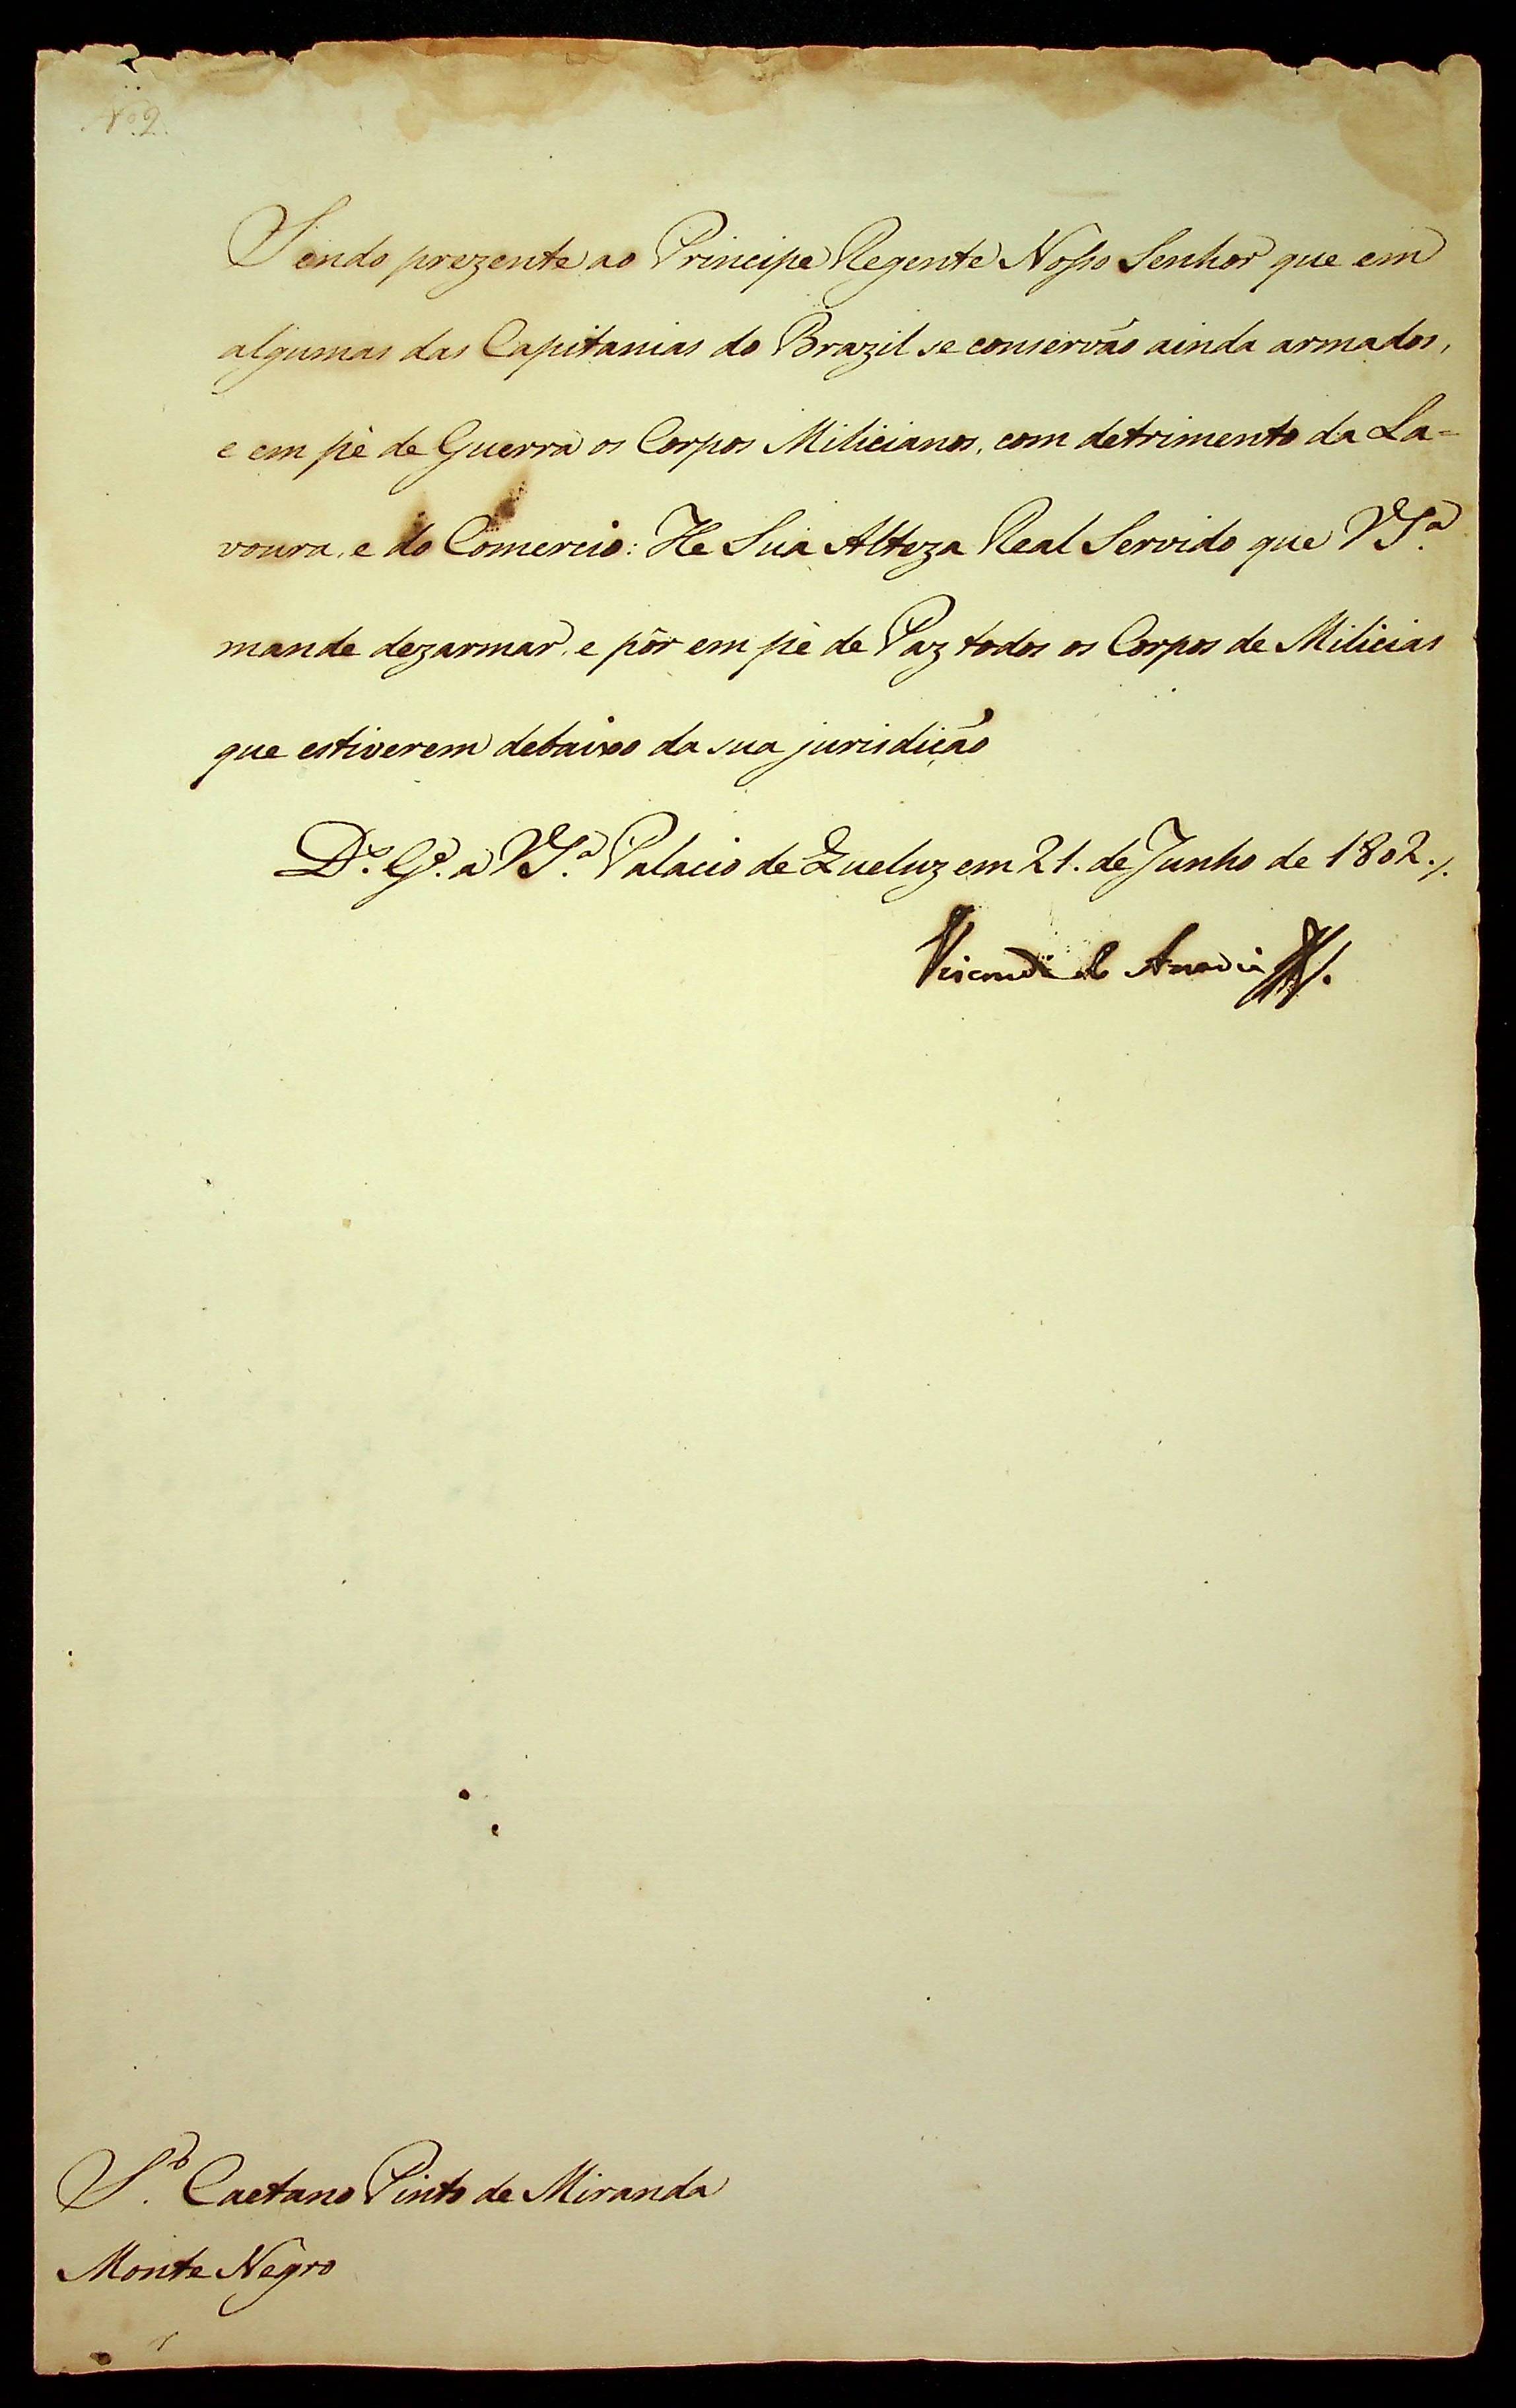 Nº 2.
Sendo prezente ao Principe Regente Nosso Senhor que em
algumas das Capitanias do Brazil se conservão ainda armados,
e em pè de Guerra os Corpos Milicianos, com detrimento da La=
voura, e do Comercio: He Sua Alteza Real Servido que VSª.
mande dezarmar, e pôr em pè de Paz todos os Corpos de Milicias
que estiverem debaixo da sua jurisdição
Dˢ. Gᵉ. a VSª. Palacio de Queluz em 21. de Junho de 1802./.
Visconde de Anadia
Sʳ. Caetano Pinto de Miranda
Monte Negro